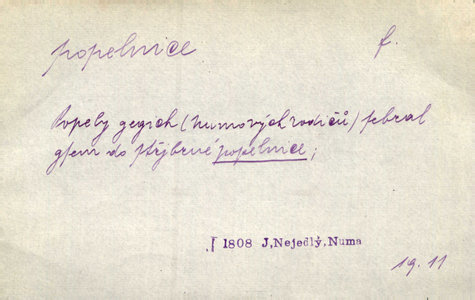 popelnice f.
Popely gegich (Numových rodičů) sebral
gsem do stříbrné popelnice;
1808 J,Nejedlý,Numa
19.11